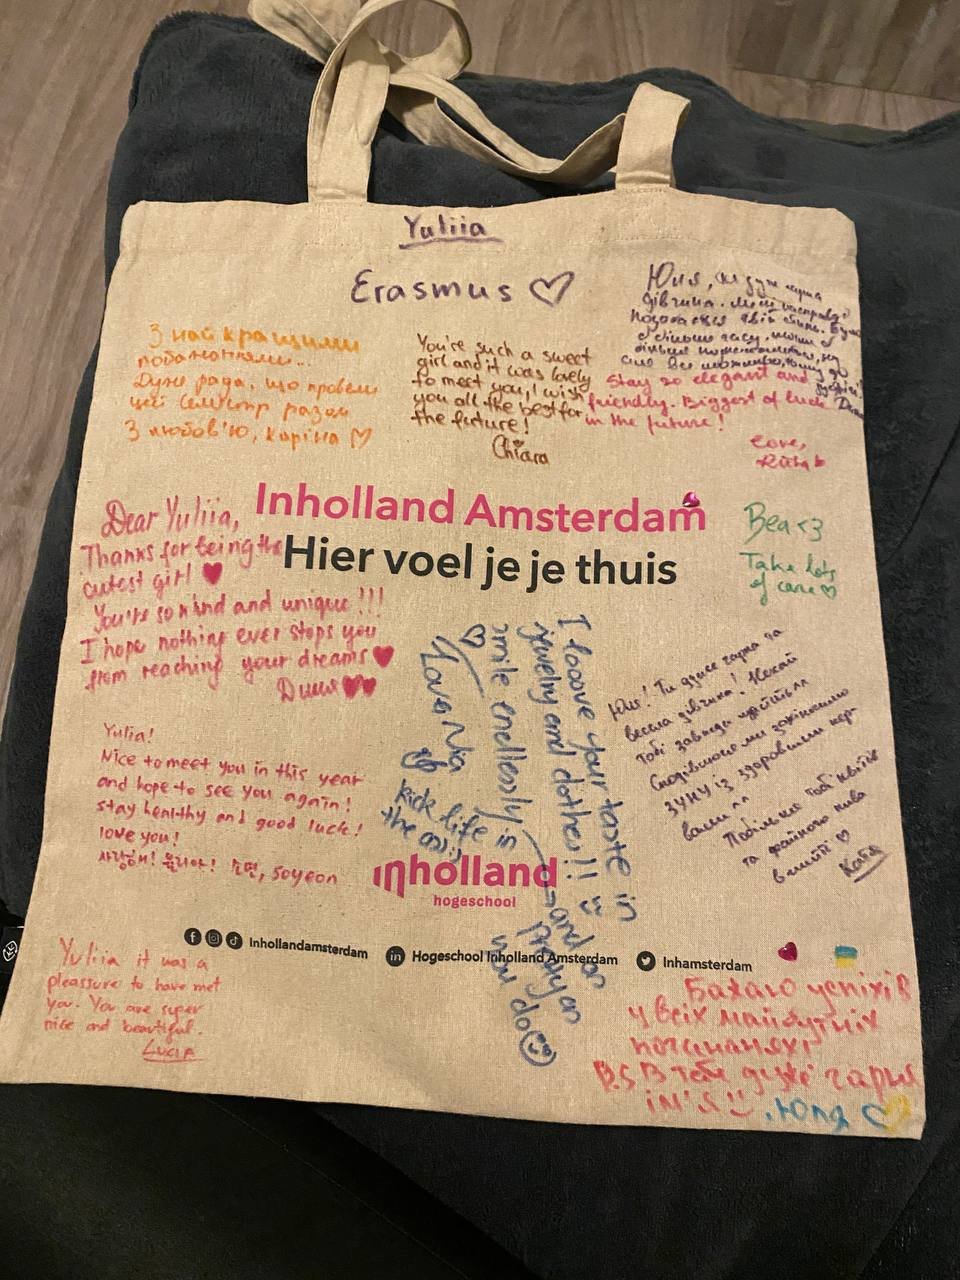 Yuliia
Erasmus
Юлія, ти дуже гарна
дівчина. Мені насправді
З найкращими
побажаннями..
Дуже рада, що провели
цей семестр разом
З любов'ю, Каріна
You're such a sweet
girl and it was lovely
to meet you, I wish
you all the best for
the future!
Chiara
Stay so elegant and
friendly. Biggest of luck
in the future!
Love,
Inholland Amsterdam
Hier voel je je thuis
Dear Yuliia,
Thanks for being the
cutest girl
You're so kind and unique!!!
I hope nothing ever stops you
from reaching your dreams
Bea <3
Take lots
of care
I looove your taste in
jewelry and clothes!!
smile endlessly is
Love Nia
kick life in
the ass
and
pretty on
you do
Юля! Ти дуже гарна та
весела дівчина! Нехай
тобі завжди щастить
Сподіваюся ми закінчимо
зуку із здоровими нер-
вами ^^
Побільше тобі квітів
та файного пива
в житті
Катя
Yulia!
Nice to meet you in this year
and hope to see you again!
stay healthy and good luck!
love you!
사랑해! 율리아! 소연, Soyeon
inholland
hogeschool
Inhollandamsterdam
in
Hogeschool Inholland Amsterdam
Inhamsterdam
Yuliia it was a
pleassure to have met
you. You are super
nice and beautiful.
Lucia
Бажаю успіхів
у всіх майбутніх
починаннях!
P.S В тебе дуже гарне
ім'я .Юля